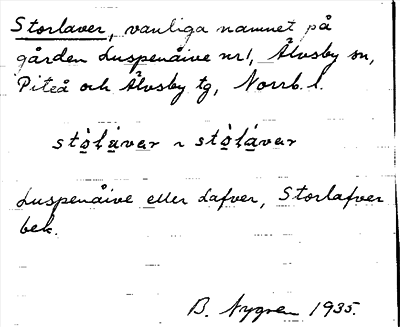 Storlaver, vanliga namnet på
gården Luspenåive nr 1, Älvsby sn,
Piteå och Älvsby tg, Norrb. l.
stò̱lá̱var ~ stò̱lá̱var
Luspenåive eller Lafver, Storlafver
bek.
B. Nygren 1935.